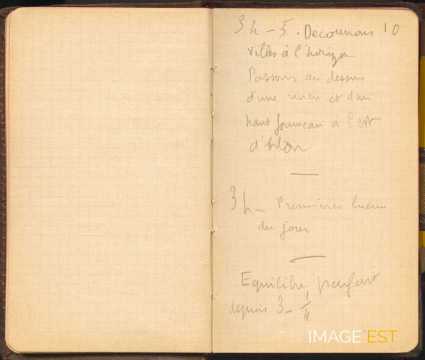 3 h - 5. Decouvrons 10
villes à l'horizon
Passons au dessus
d'une usine et d'un
haut fourneau à l'est
d'Arlon
3 h - Premières lueurs
du jour
Equilibre parfait
depuis 3 -
IMAGE'EST